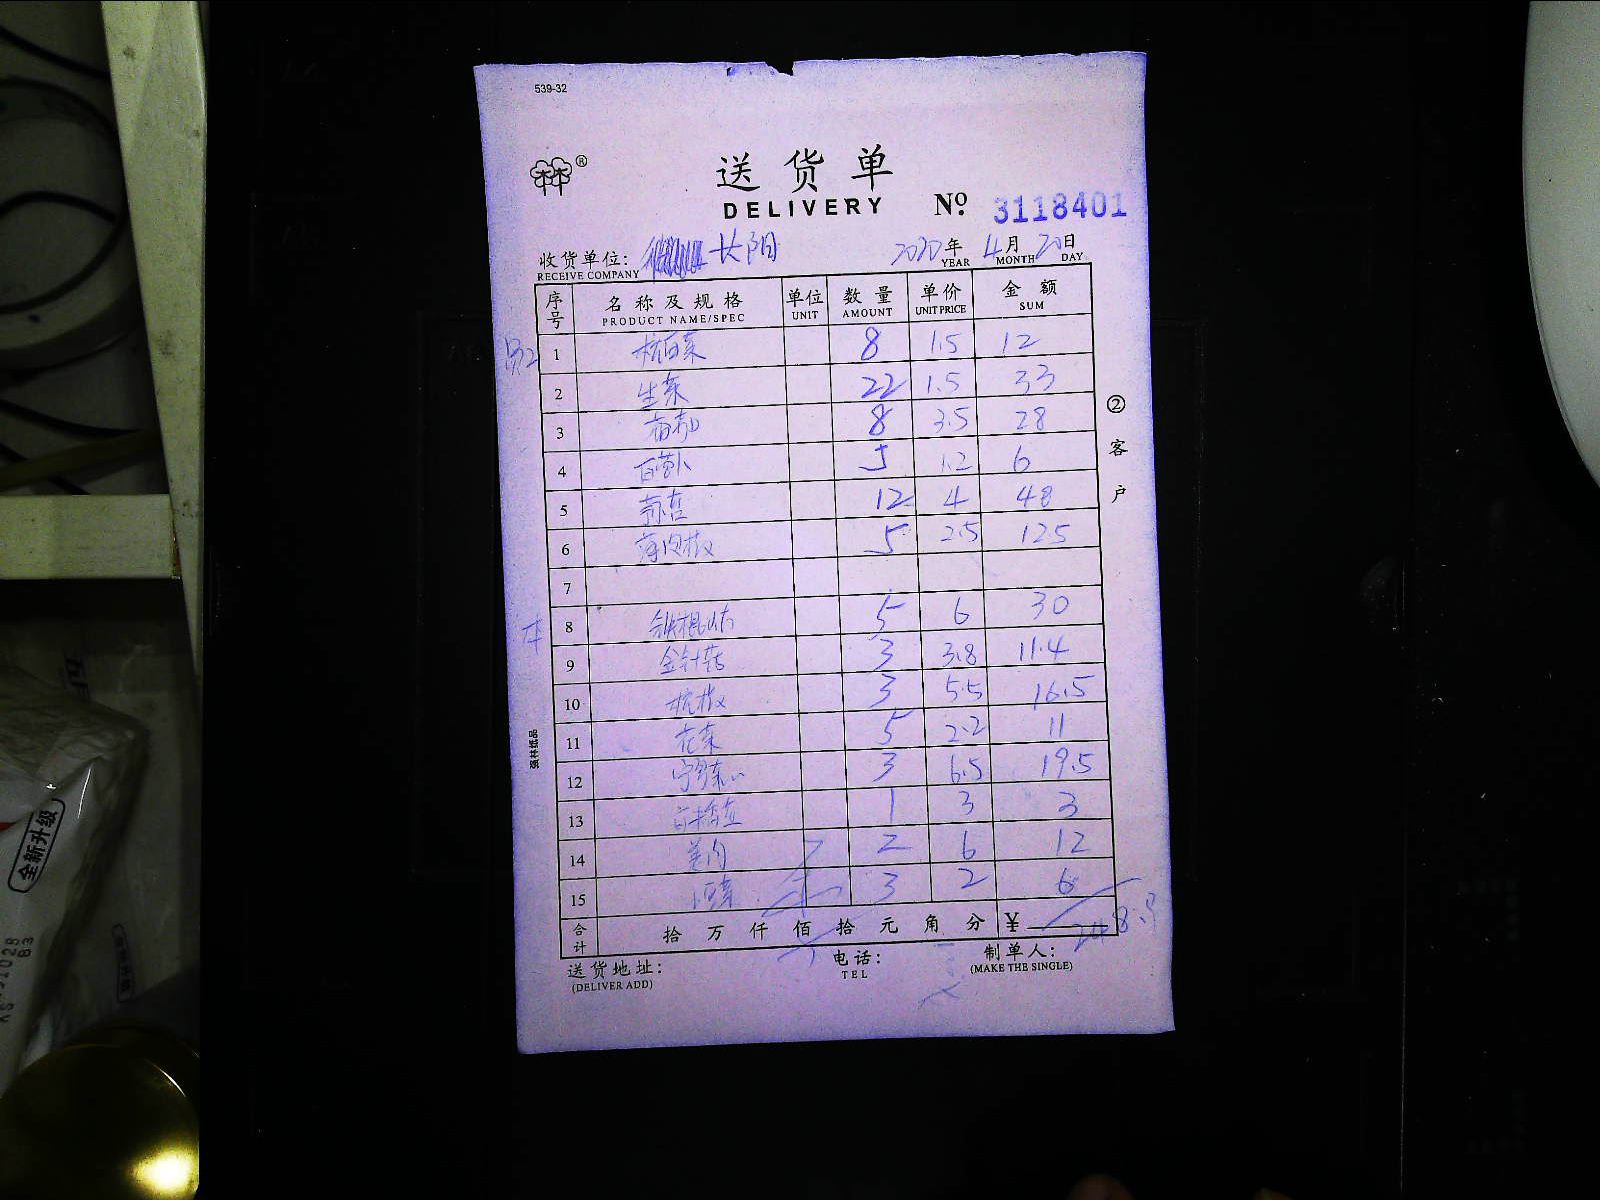 539-32
送货单
DELIVERY
№ 3118401
收货单位: 长阳 2020年 4月 20日
RECEIVE COMPANY YEAR MONTH DAY
序号 名称及规格 单位 数量 单价 金额
PRODUCT NAME/SPEC UNIT AMOUNT UNIT PRICE SUM
1 杭白菜 8 1.5 12
2 生菜 22 1.5 33
3 8 3.5 28
4 白萝卜 5 1.2 6
5 蒜苔 12 4 48
6 薄肉椒 5 2.5 12.5
7
8 铁棍山药 5 6 30
9 金针菇 3 3.8 11.4
10 杭椒 3 5.5 16.5
11 花菜 5 2.2 11
12 3 6.5 19.5
13 1 3 3
14 姜肉 2 6 12
15 3 2 6
合计 拾 万 仟 佰 拾 元 角 分 ¥ 248.9
②客户
强林纸品
送货地址: 电话: 制单人:
(DELIVER ADD) TEL (MAKE THE SINGLE)
全新升级